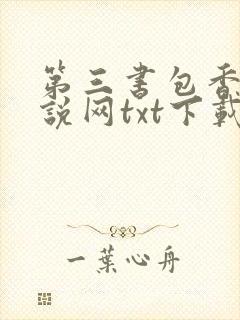 第三书包香
说网txt下载
一葉心舟